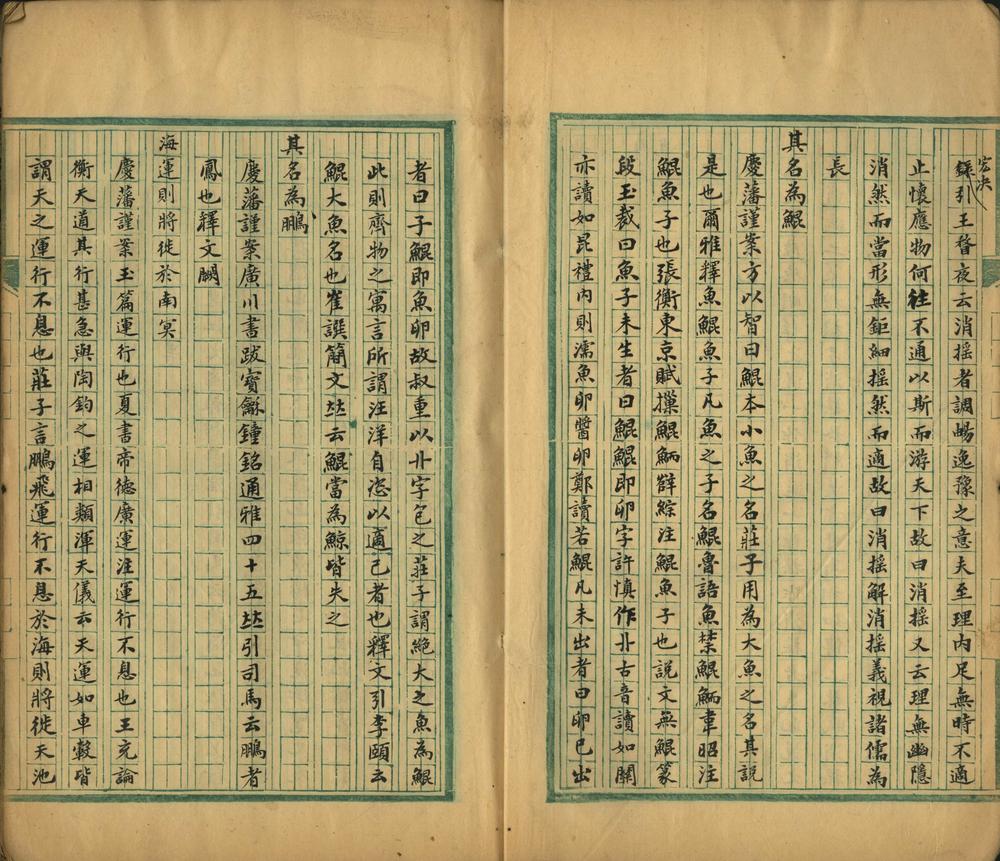 宏决
錄引王瞀夜云消摇者調暢逸豫之意夫至理内足無時不適
止懷應物何往不通以斯而游天下故曰消摇又云理無幽隱
消然而當形無鉅細摇然而適故曰消摇解消摇義視諸儒為
長
其名為鯤
慶藩謹案方以智曰鯤本小魚之名莊子用為大魚之名其說
是也爾雅釋魚鯤魚子凡魚之子名鯤魯語魚禁鯤鮞韋昭注
鯤魚子也張衡東京賦摷鯤鮞薛綜注鯤魚子也說文無鯤篆
段玉裁曰魚子未生者曰鯤鯤即卵字許慎作丱古音讀如關
亦讀如昆禮内則濡魚卵醬卵鄭讀若鯤凡未出者曰卵已出
者曰子鯤即魚卵故叔重以丱字包之莊子謂絶大之魚為鯤
此則齊物之寓言所謂汪洋自恣以適己者也釋文引李頤云
鯤大魚名也崔譔簡文竝云鯤當為鯨皆失之
其名為鵬
慶藩謹案廣川書跋寶龢鐘銘通雅四十五竝引司馬云鵬者
鳳也釋文闕
海運則將徙於南冥
慶藩謹案玉篇運行也夏書帝德廣運注運行不息也王充論
衡天道其行甚急與陶鈞之運相類渾天儀云天運如車轂皆
謂天之運行不息也莊子言鵬飛運行不息於海則將徙天池